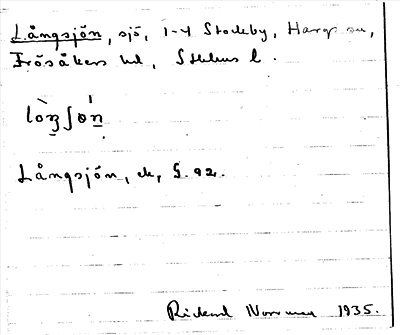 Långsjön, sjö, 1-4 Stockby, Hargs sn,
Frösåkers hd, Sthlms l.
Långsjön, ek, S. 92.
Rickard Norrman 1935.